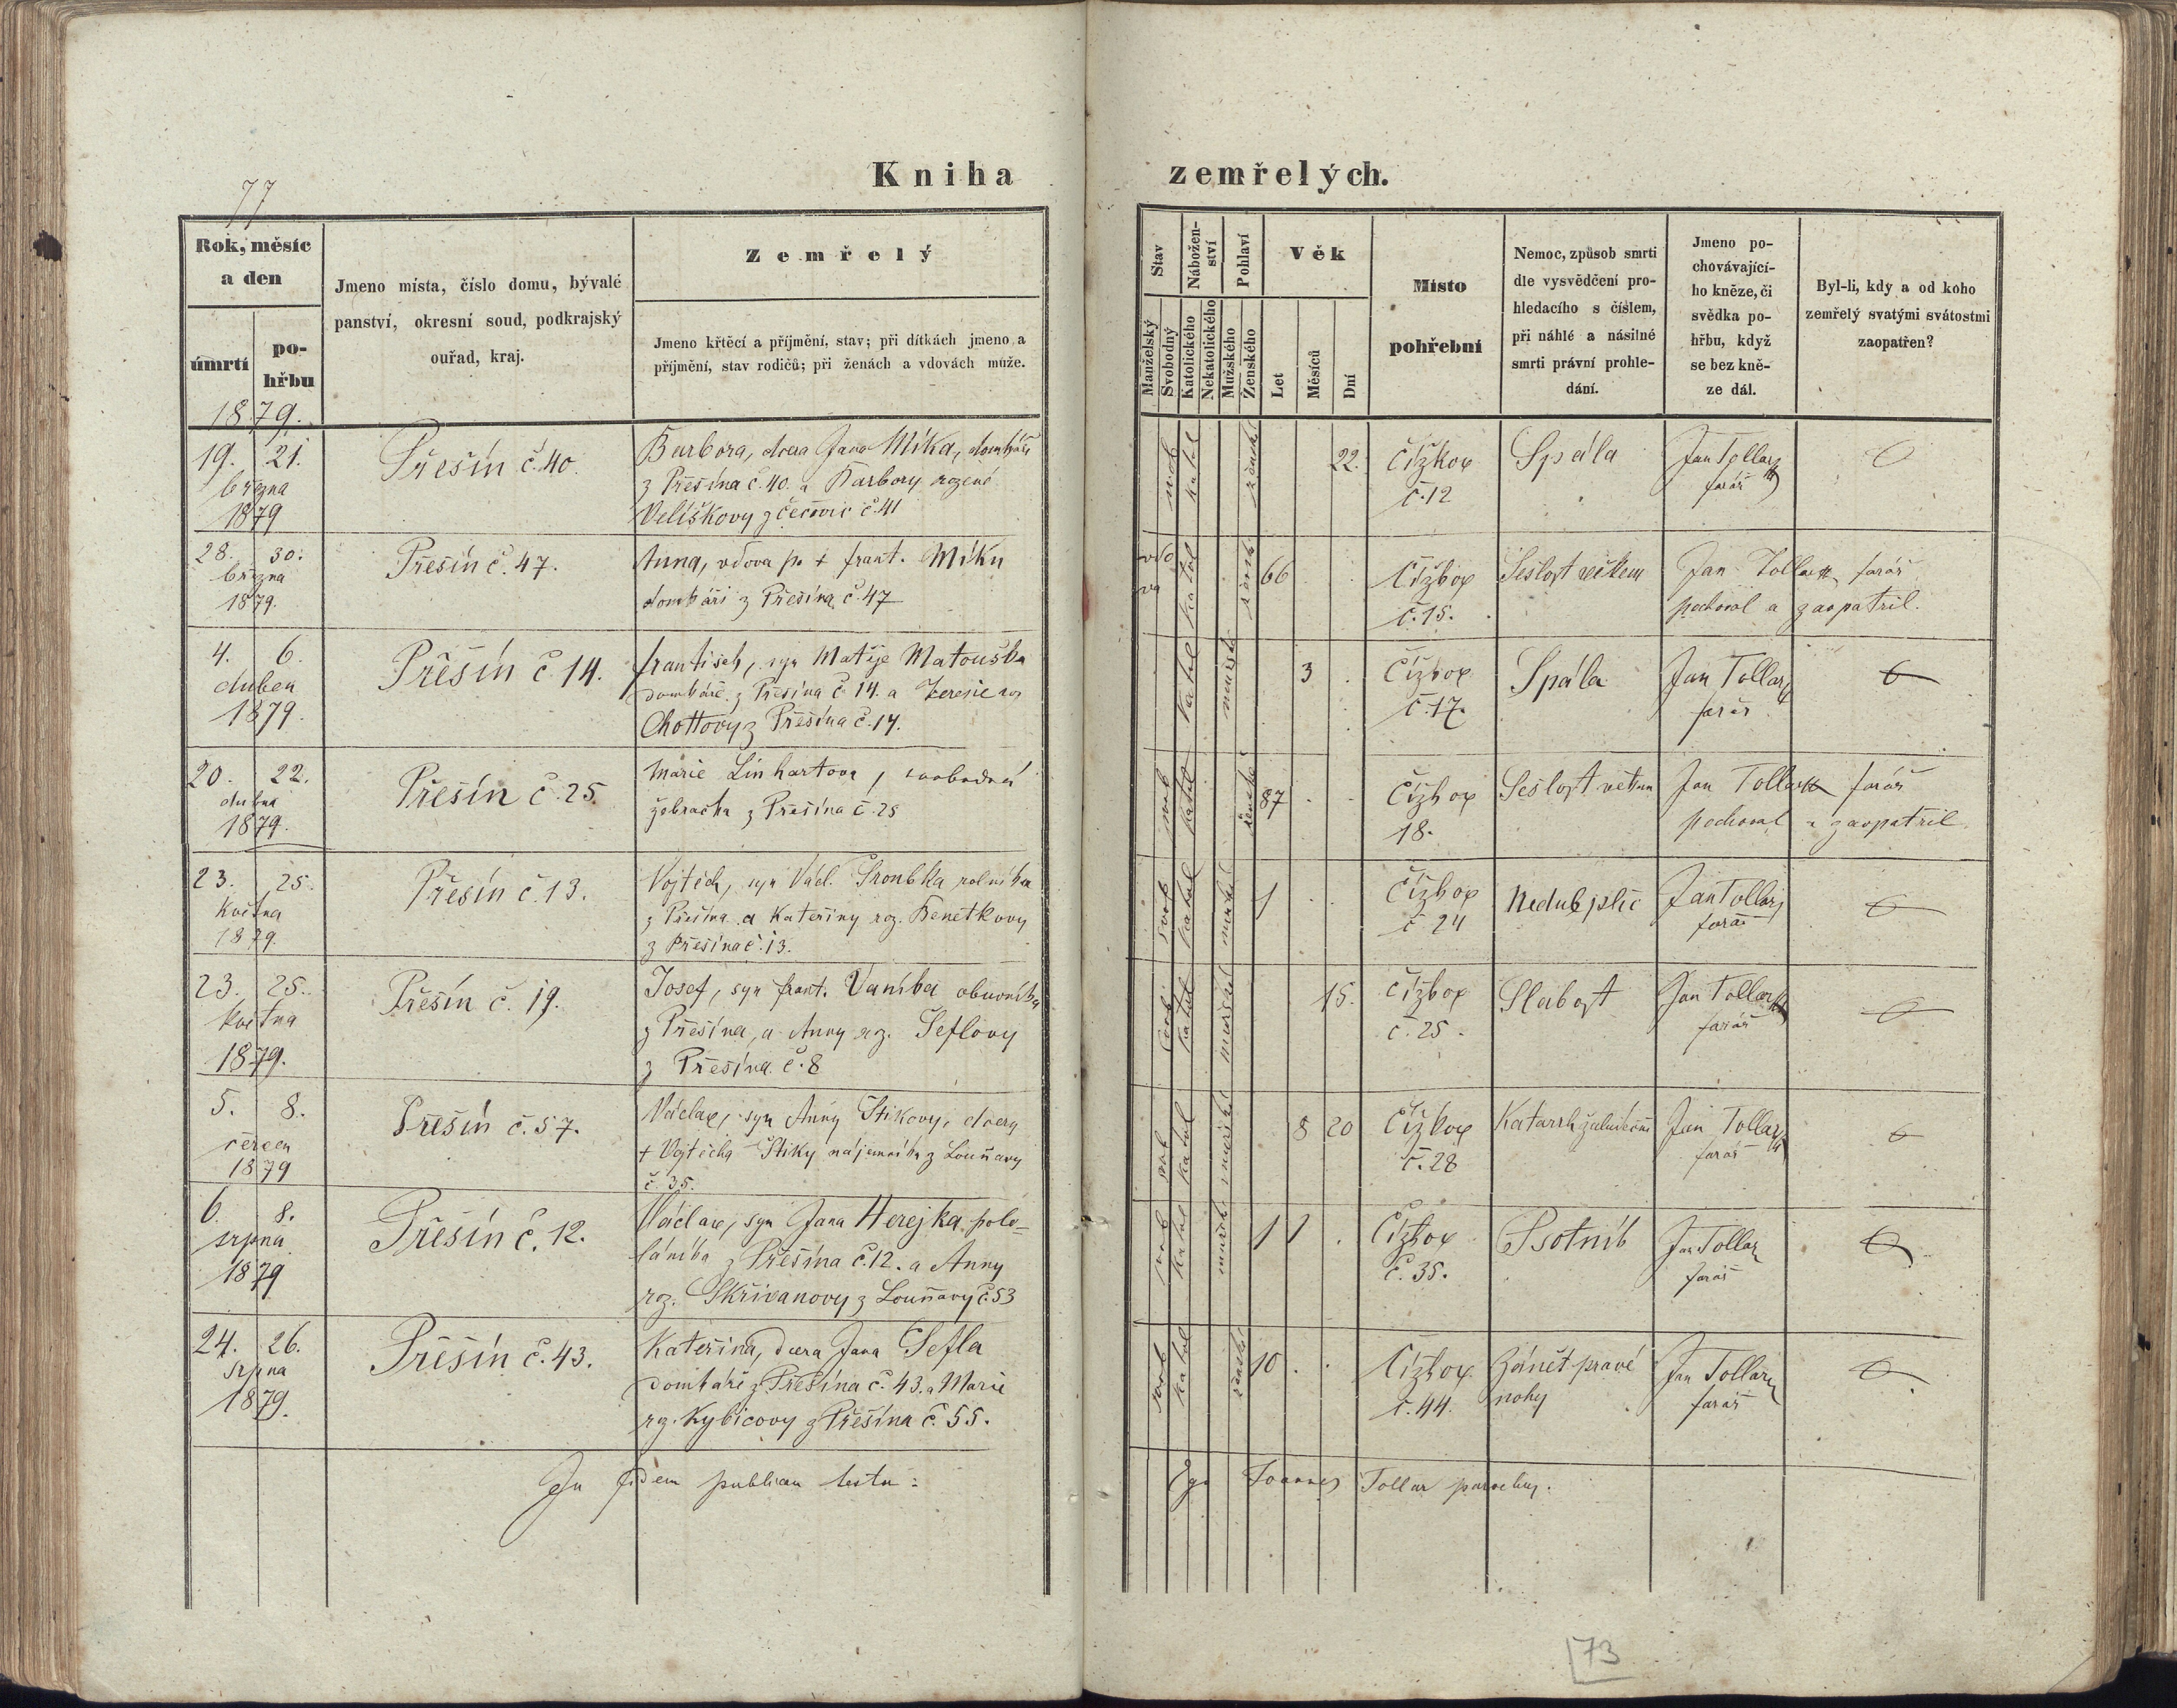 77
Kniha zemřelých.
Rok, měsíc
a den
úmrtí
po-
hřbu
1879.
Jmeno místa, číslo domu, bývalé
panství, okresní soud, podkrajský
ouřad, kraj.
Zemřelý
Jmeno křtěcí a příjmění, stav; při dítkách jmeno a
příjmění, stav rodičů; při ženách a vdovách muže.
Stav
Nábožen-
ství
Pohlaví
Věk
Manželský
Svobodný
Katolického
Nekatolického
Mužského
Ženského
Let
Měsíců
Dní
Místo
pohřební
Nemoc, způsob smrti
dle vysvědčení pro-
hledacího s číslem,
při náhlé a násilné
smrti právní prohle-
dání.
Jmeno po-
chovávající-
ho kněze, či
svědka po-
hřbu, když
se bez kně-
ze dál.
Byl-li, kdy a od koho
zemřelý svatými svátostmi
zaopatřen?
19. 21.
března
1879
Přešín č. 40.
Barbora, dcera Jana Míka, domkáře
z Přešína č. 40. a Barbory rozené
Velíškovy z Čečovic č. 41
svob
katol
ženské
22.
Čížkov
č. 12
Spála
Jan Tollar
farář
28. 30.
března
1879.
Přešín č. 47.
Anna, vdova po + frant. Míku
domkáři z Přešína č. 47
vdo
va
katol
žensk
66
Čížkov
č. 15.
Sešlost věkem
Jan Tollar farář
pochoval a zaopatřil.
4. 6.
duben
1879.
Přešín č 14.
František, syn Matěje Matouška
domkáře z Přešína č. 14. a Terezie roz
Chottovy z Přešína č. 14.
katol
mužské
3
Čížkov
č. 17.
Spála
Jan Tollar
farář
20. 22.
dubna
1879.
Přešín č. 25.
Marie Linhartova, svobodná
žebračka z Přešína č. 25
svob
katol
ženské
87
Čížkov
18.
Sešlost věkem
Jan Tollar farář
pochoval a zaopatřil
23. 25.
května
1879.
Přešín č. 13.
Vojtěch, syn Václ. Troubka rolníka
z Přešína a Kateřiny roz. Benetkovy
z Přešína č. 13.
svob
katol
mužské
1
Čížkov
č. 24
Neduh plic
Jan Tollar
farář
23. 25.
května
1879.
Přešín č. 19.
Josef, syn frant. Vaníka obuvníka
z Přešína, a Anny roz. Šeflovy
z Přešína č. 8
svob
katol
mužské
15.
Čížkov
č. 25.
Slabost
Jan Tollar
farář
5. 8.
červen
1879
Přešín č. 57.
Václav, syn Anny Štikovy, dcery
+ Vojtěcha Štiky nájemníka z Louňavy
č. 35.
svob
katol
mužské
8 20
Čížkov
č. 28
Katarrh žaludeční
Jan Tollar
farář
6. 8.
srpna
1879
Přešín č. 12.
Václav, syn Jana Herejka polo-
láníka z Přešína č. 12. a Anny
roz. Skřivanovy z Louňavy č. 53
svob
katol
mužské
1 1
Čížkov
č. 35.
Psotník
Jan Tollar
farář
24. 26.
srpna
1879.
Přešín č. 43.
Kateřina, dcera Jana Šefla
domkáře z Přešína č. 43. a Marie
roz. Kybicovy z Přešína č. 55.
svob
katol
ženské
10
Čížkov
č. 44.
Zánět pravé
nohy
Jan Tollar
farář
In fidem publicam testor:
Ego Joannes Tollar parochus.
73